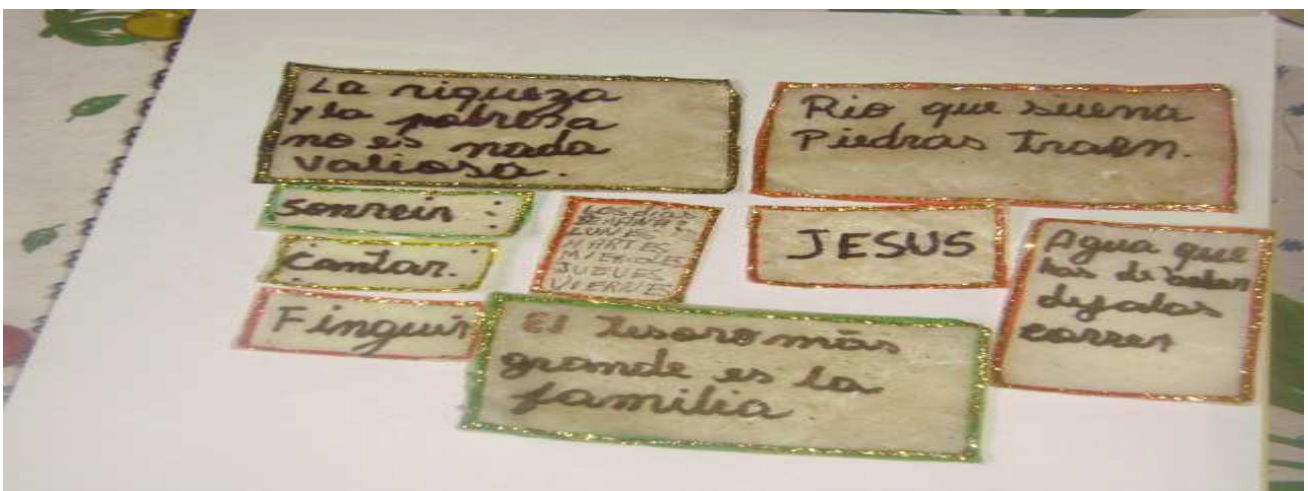 La riqueza
y la pobresa
no es nada
valiosa.
Rio que suena
Piedras Traen.
Sonreir :
Cantar :
Finguir
LUNES
MARTES
MIERCOLES
JUEVES
VIERNES
JESUS
Agua que
has de
dejalas
correr
El tesoro más
grande es la
familia.